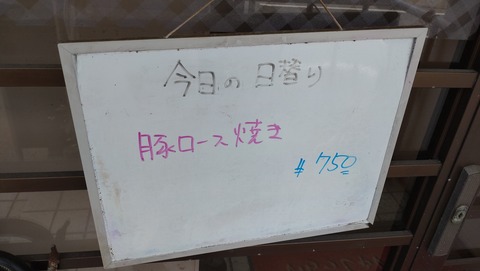 今日の日替り
豚ロース焼き
¥750